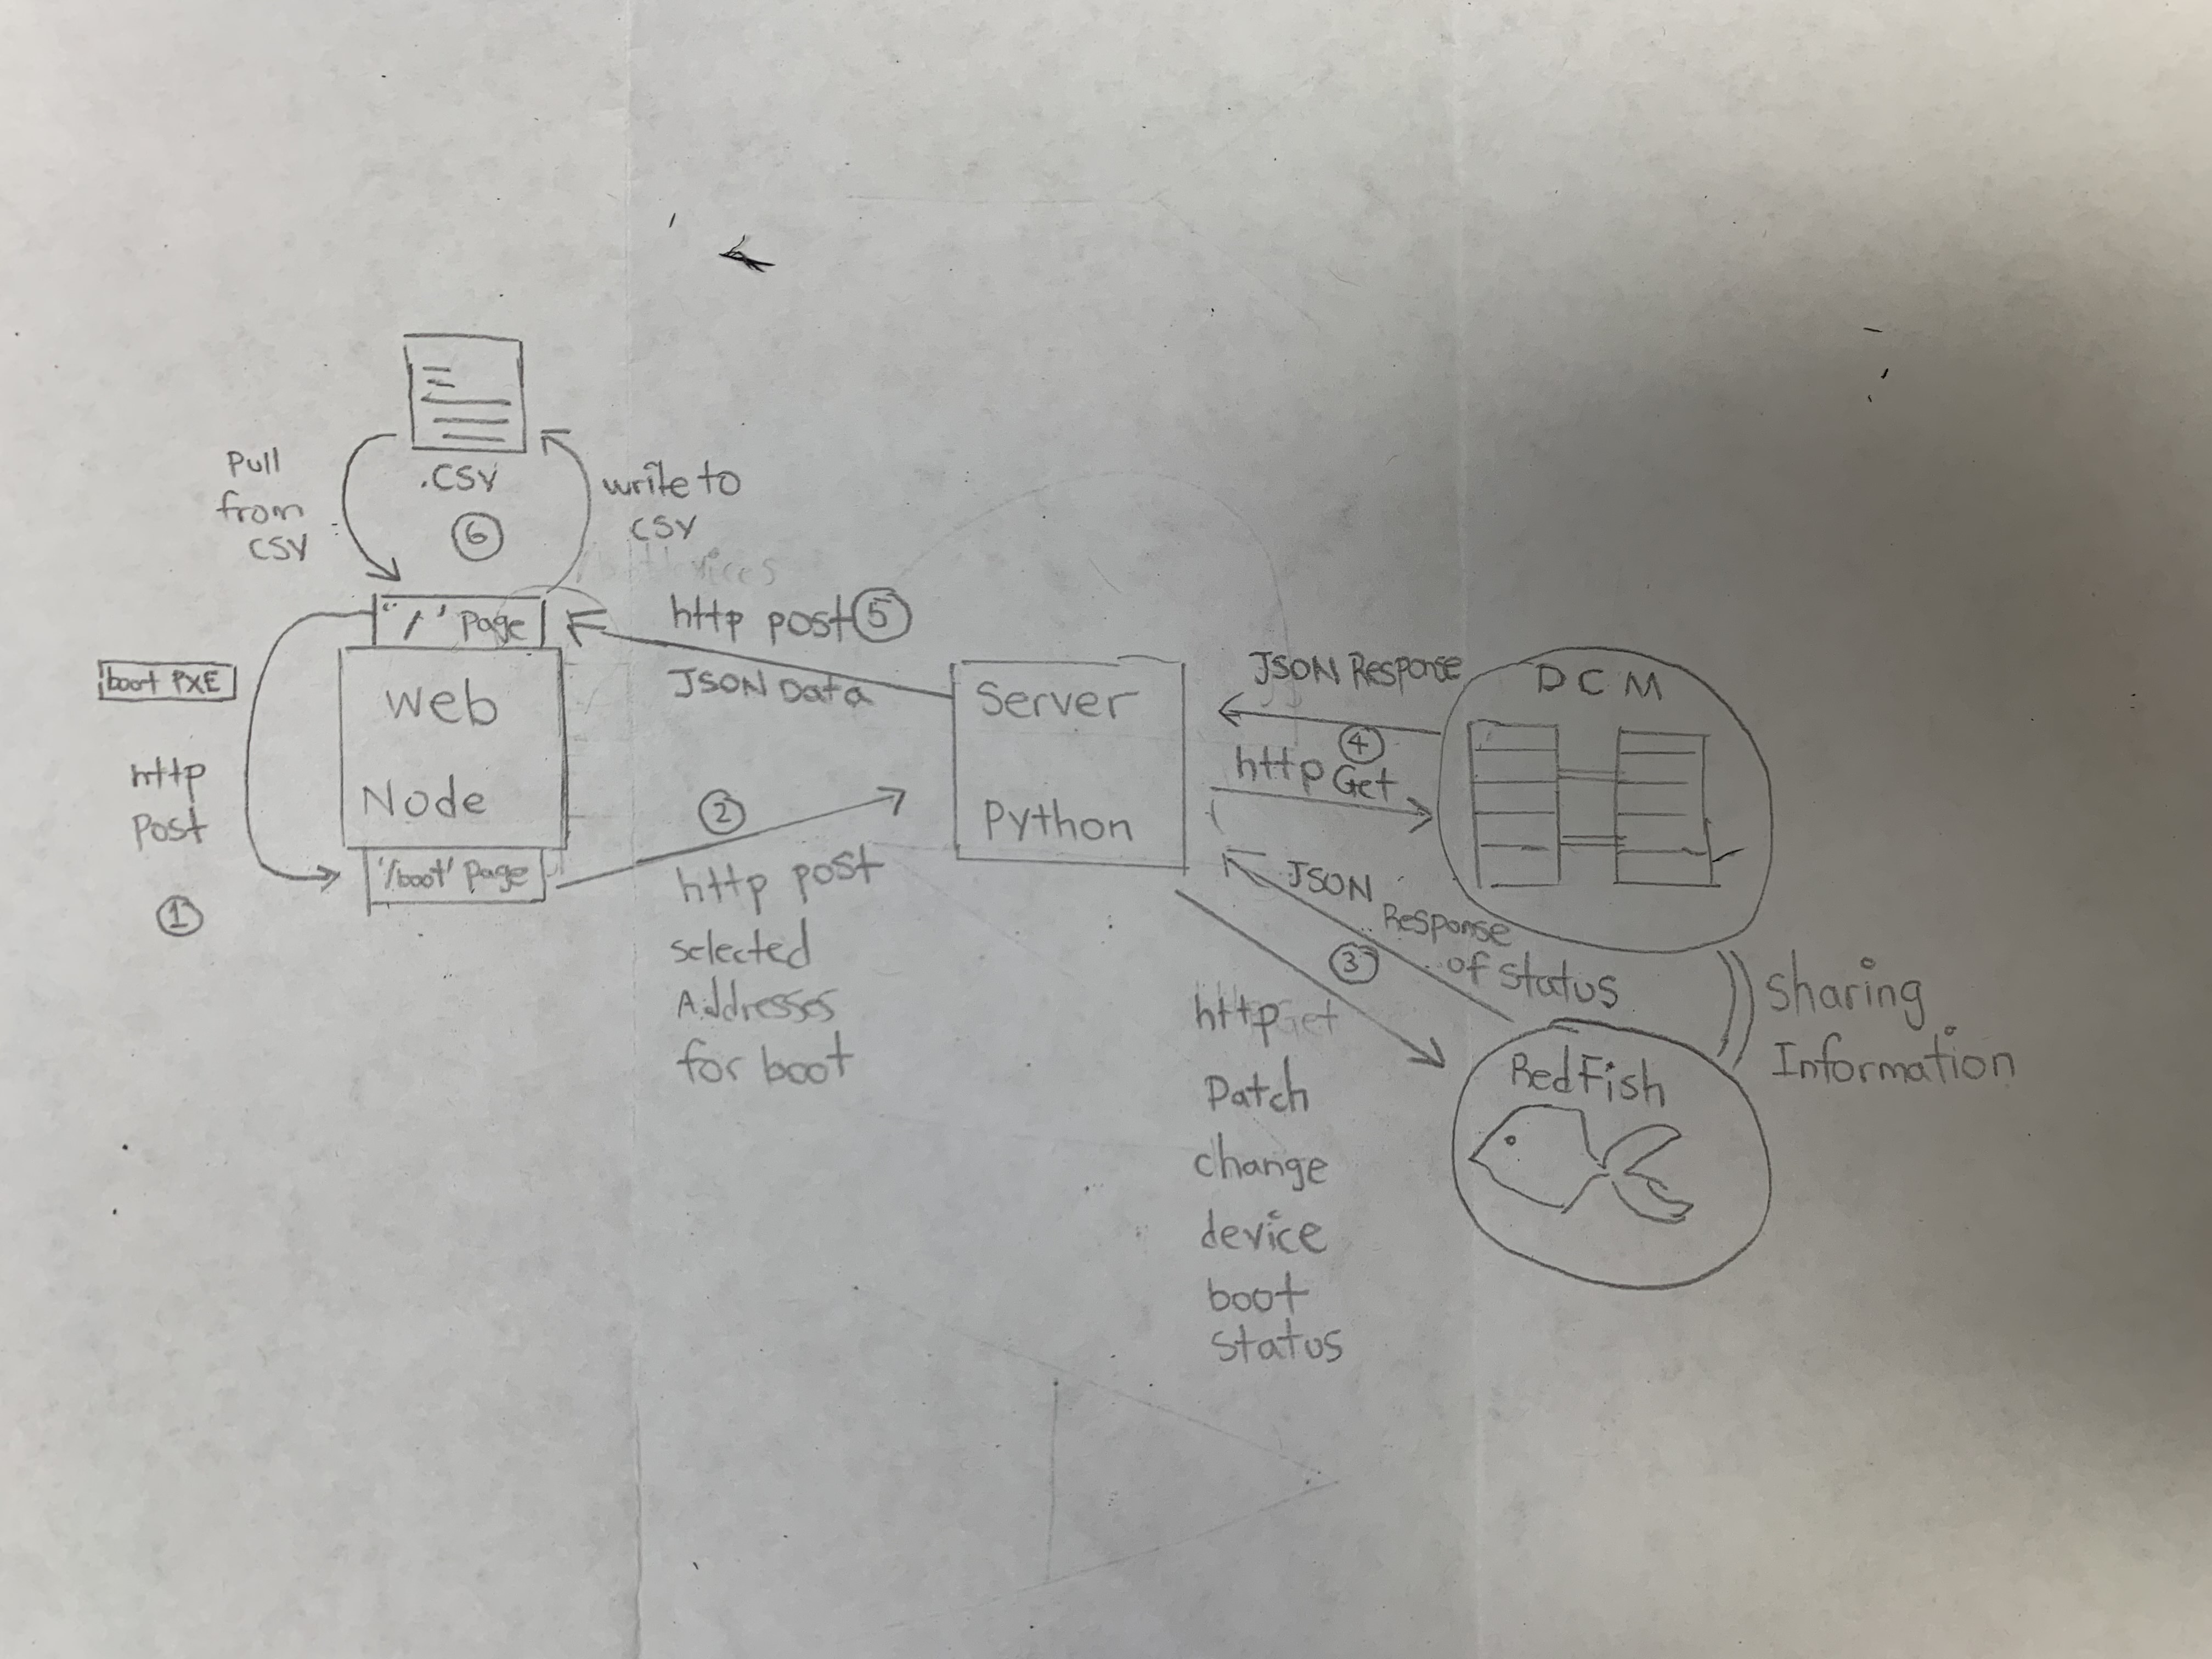 Pull
from
CSV
.CSV
⑥
write to
CSV
boot PXE
http
Post
①
"/" Page
Web
Node
"/boot" Page
http post ⑤
JSON Data
②
http post
selected
Addresses
for boot
Server
Python
JSON Response
④
http Get
JSON Response
of status
③
http
Patch
change
device
boot
status
DCM
RedFish
Sharing
Information